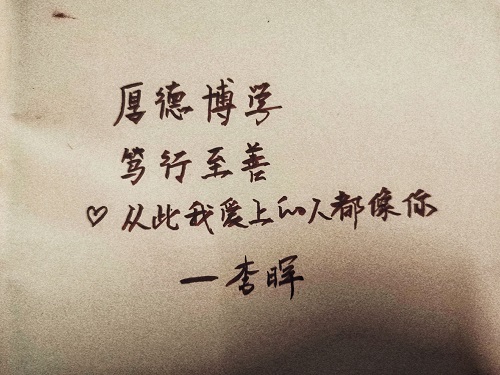 厚德博学
笃行至善
♡从此我爱上的人都像你
—李晖